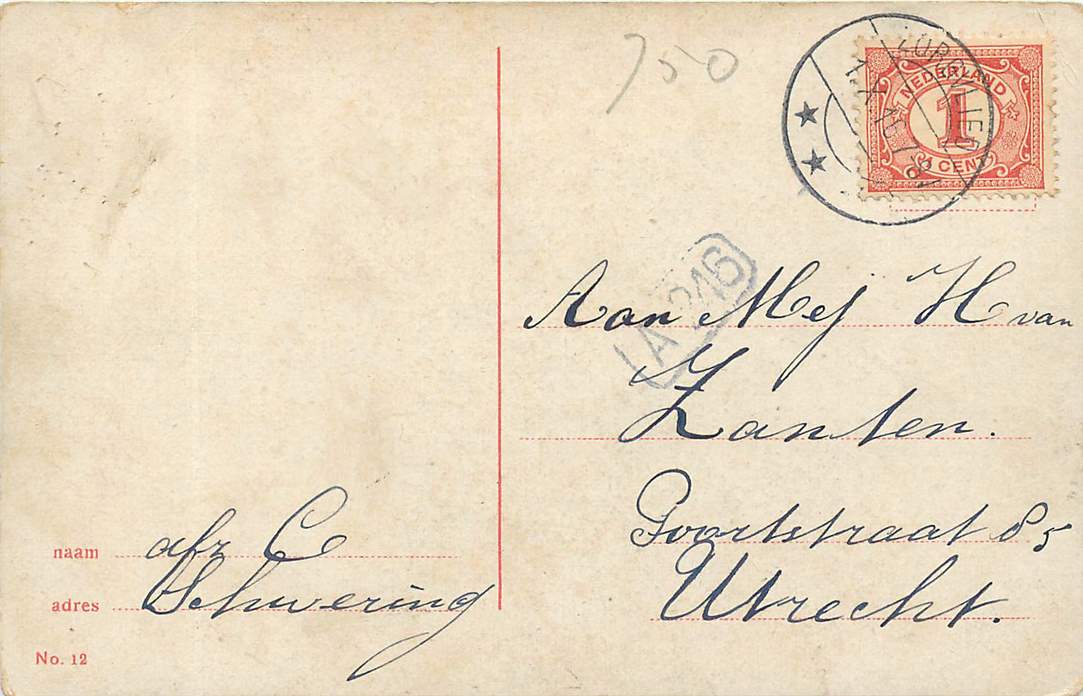 750
NEDERLAND
1
1 CENT
A 246
Aan Mej H van
Zanten.
Poortstraat 85
Utrecht.
naam afz C
adres Schwering
No. 12